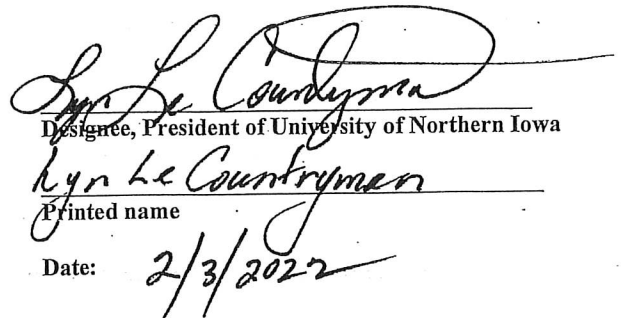 Lyn Le Countryman
Designee, President of University of Northern Iowa
Lyn Le Countryman
Printed name
Date: 2/3/2022